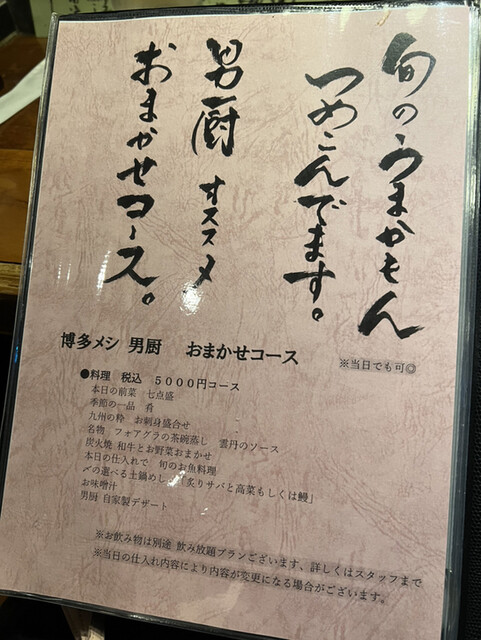 旬のうまかもん
つめこんでます。
男厨 オススメ
おまかせコース。
博多メシ 男厨 おまかせコース
※当日でも可◎
●料理 税込 5000円コース
本日の前菜 七点盛
季節の一品 肴
九州の粋 お刺身盛合せ
名物 フォアグラの茶碗蒸し 雲丹のソース
炭火焼 和牛とお野菜おまかせ
本日の仕入れで 旬のお魚料理
〆の選べる土鍋めし「炙りサバと高菜もしくは鰻」
お味噌汁
男厨 自家製デザート
※お飲み物は別途 飲み放題プランございます、詳しくはスタッフまで
※当日の仕入れ内容により内容が変更になる場合がございます。